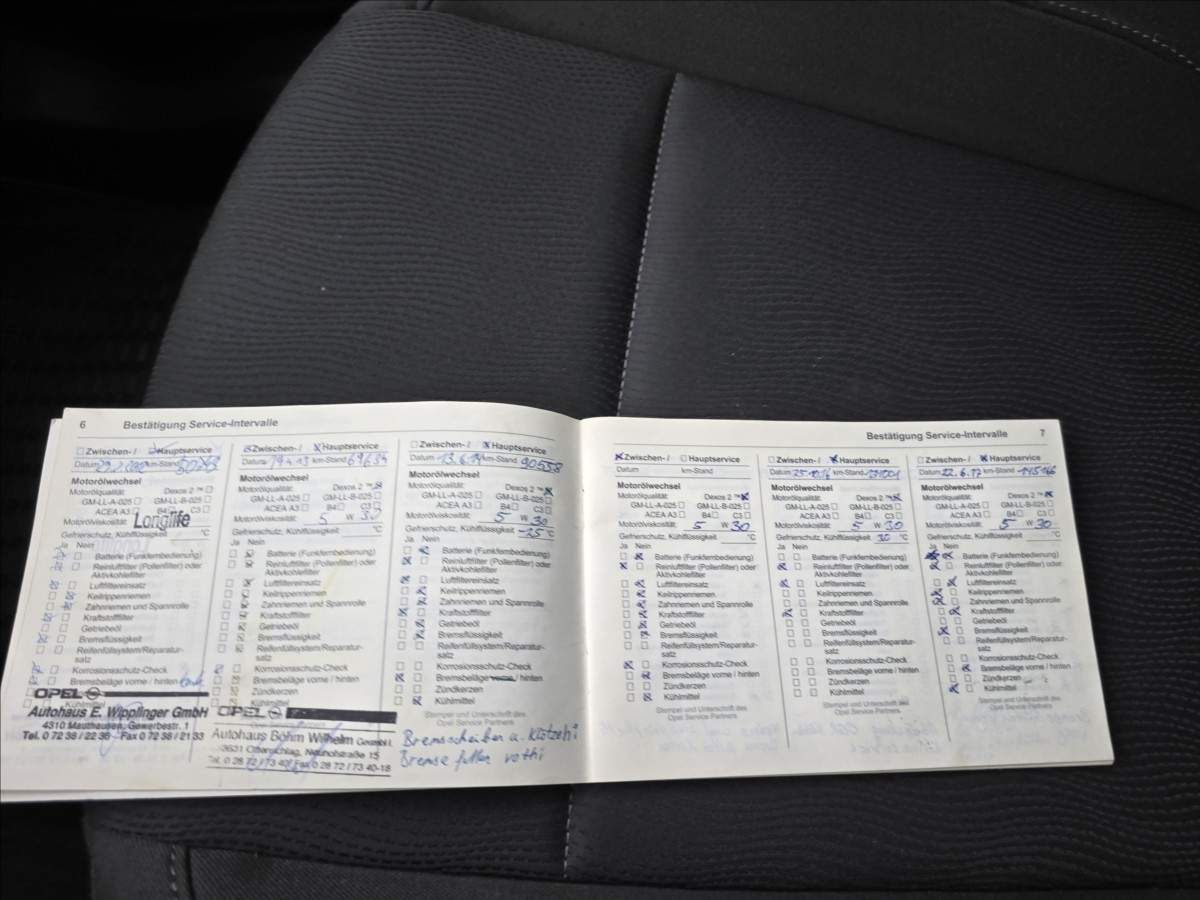 6 Bestätigung Service-Intervalle
Zwischen-/ Hauptservice
Datum km-Stand
Motorölwechsel
Motorölqualität: Dexos 2 ™
GM-LL-A-025 GM-LL-B-025
ACEA A3 B4 C3
Longlife
Motorölviskosität:
Gefrierschutz, Kühlflüssigkeit °C
Ja Nein
Batterie (Funkfernbedienung)
Reinluftfilter (Pollenfilter) oder
Aktivkohlefilter
Luftfiltereinsatz
Keilrippenriemen
Zahnriemen und Spannrolle
Kraftstofffilter
Getriebeöl
Bremsflüssigkeit
Reifenfüllsystem/Reparatur-
satz
Korrosionsschutz-Check
Bremsbeläge vorne / hinten
OPEL
Autohaus E. Wipplinger GmbH
4310 Mauthausen, Gewerbestr. 1
Tel. 0 72 38 / 22 38 - Fax 0 72 38 / 21 33
Zwischen-/ Hauptservice
Datum 19.4.13 km-Stand
Motorölwechsel
Motorölqualität: Dexos 2 ™
GM-LL-A-025 GM-LL-B-025
ACEA A3 B4 C3
Motorölviskosität: 5 W 30
Gefrierschutz, Kühlflüssigkeit °C
Ja Nein
Batterie (Funkfernbedienung)
Reinluftfilter (Pollenfilter) oder
Aktivkohlefilter
Luftfiltereinsatz
Keilrippenriemen
Zahnriemen und Spannrolle
Kraftstofffilter
Getriebeöl
Bremsflüssigkeit
Reifenfüllsystem/Reparatur-
satz
Korrosionsschutz-Check
Bremsbeläge vorne / hinten
Zündkerzen
Kühlmittel
OPEL
Autohaus Böhm Wilhelm GesmbH
3631 Ottenschlag, Neuhofstraße 15
Tel. 0 28 72 / 73 40, Fax 0 28 72 / 73 40-18
Zwischen-/ Hauptservice
Datum 13.6.14 km-Stand 90558
Motorölwechsel
Motorölqualität: Dexos 2 ™
GM-LL-A-025 GM-LL-B-025
ACEA A3 B4 C3
Motorölviskosität: 5 W 30
Gefrierschutz, Kühlflüssigkeit -25 °C
Ja Nein
Batterie (Funkfernbedienung)
Reinluftfilter (Pollenfilter) oder
Aktivkohlefilter
Luftfiltereinsatz
Keilrippenriemen
Zahnriemen und Spannrolle
Kraftstofffilter
Getriebeöl
Bremsflüssigkeit
Reifenfüllsystem/Reparatur-
satz
Korrosionsschutz-Check
Bremsbeläge vorne / hinten
Zündkerzen
Kühlmittel
Stempel und Unterschrift des
Opel Service Partners
Bremsscheiben u. Klötze hi
Bremse
Bestätigung Service-Intervalle 7
Zwischen-/ Hauptservice
Datum km-Stand
Motorölwechsel
Motorölqualität: Dexos 2 ™
GM-LL-A-025 GM-LL-B-025
ACEA A3 B4 C3
Motorölviskosität: 5 W 30
Gefrierschutz, Kühlflüssigkeit °C
Ja Nein
Batterie (Funkfernbedienung)
Reinluftfilter (Pollenfilter) oder
Aktivkohlefilter
Luftfiltereinsatz
Keilrippenriemen
Zahnriemen und Spannrolle
Kraftstofffilter
Getriebeöl
Bremsflüssigkeit
Reifenfüllsystem/Reparatur-
satz
Korrosionsschutz-Check
Bremsbeläge vorne / hinten
Zündkerzen
Kühlmittel
Stempel und Unterschrift des
Opel Service Partners
Zwischen-/ Hauptservice
Datum km-Stand
Motorölwechsel
Motorölqualität: Dexos 2 ™
GM-LL-A-025 GM-LL-B-025
ACEA A3 B4 C3
Motorölviskosität: 5 W 30
Gefrierschutz, Kühlflüssigkeit 30 °C
Ja Nein
Batterie (Funkfernbedienung)
Reinluftfilter (Pollenfilter) oder
Aktivkohlefilter
Luftfiltereinsatz
Keilrippenriemen
Zahnriemen und Spannrolle
Kraftstofffilter
Getriebeöl
Bremsflüssigkeit
Reifenfüllsystem/Reparatur-
satz
Korrosionsschutz-Check
Bremsbeläge vorne / hinten
Zündkerzen
Kühlmittel
Stempel und Unterschrift des
Opel Service Partners
Zwischen-/ Hauptservice
Datum 22.6.17 km-Stand
Motorölwechsel
Motorölqualität: Dexos 2 ™
GM-LL-A-025 GM-LL-B-025
ACEA A3 B4 C3
Motorölviskosität: 5 W 30
Gefrierschutz, Kühlflüssigkeit °C
Ja Nein
Batterie (Funkfernbedienung)
Reinluftfilter (Pollenfilter) oder
Aktivkohlefilter
Luftfiltereinsatz
Keilrippenriemen
Zahnriemen und Spannrolle
Kraftstofffilter
Getriebeöl
Bremsflüssigkeit
Reifenfüllsystem/Reparatur-
satz
Korrosionsschutz-Check
Bremsbeläge vorne / hinten
Zündkerzen
Kühlmittel
Stempel und Unterschrift des
Opel Service Partners